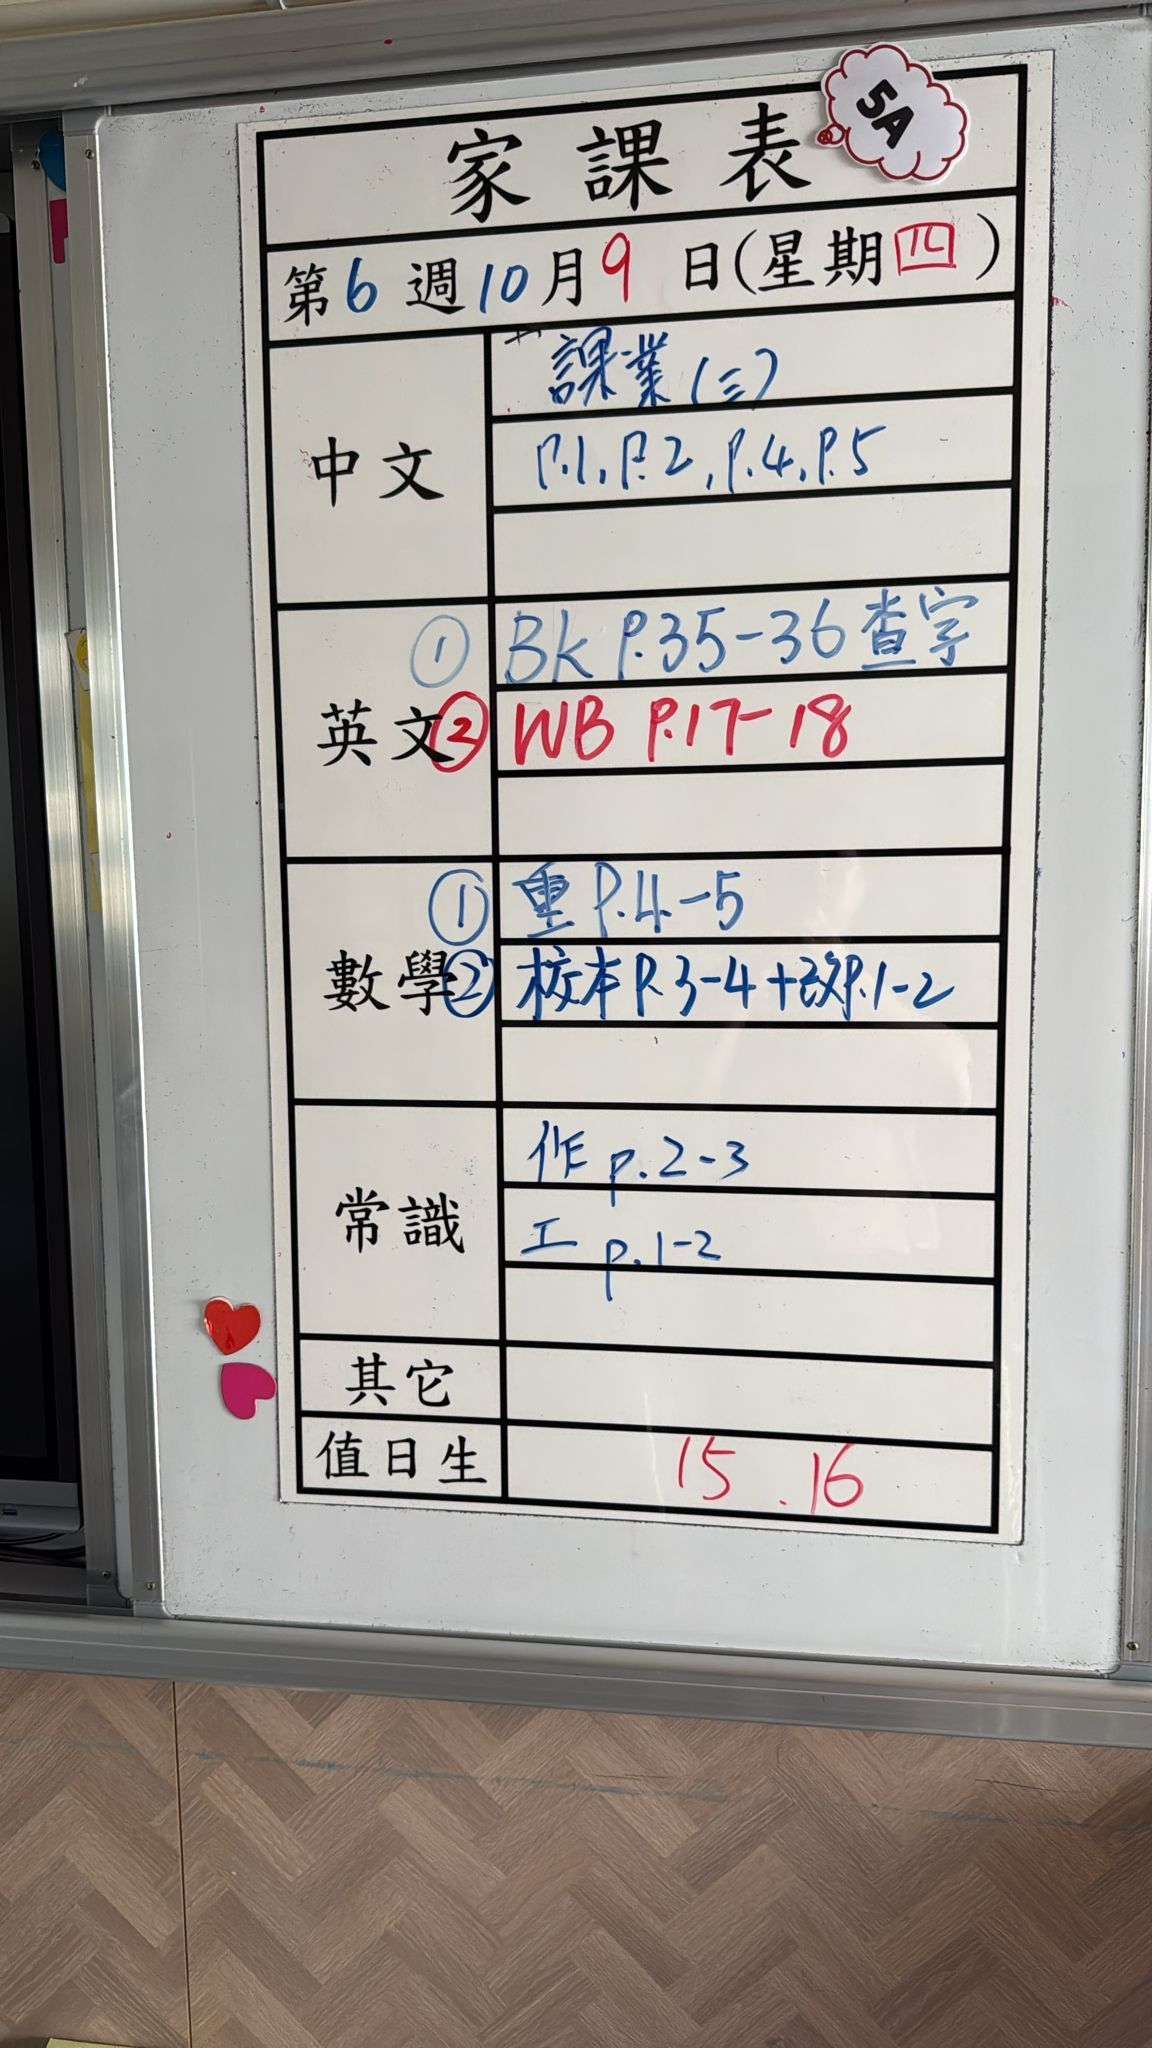 5A
家課表
第6週10月9日(星期四)
中文
課業(三)
P.1, P.2, P.4, P.5
英文
① BK P.35-36 查字
② WB P.17-18
數學
① 重 P.4-5
② 校本 P.3-4+改P.1-2
常識
作 p.2-3
工 p.1-2
其它
值日生
15.16